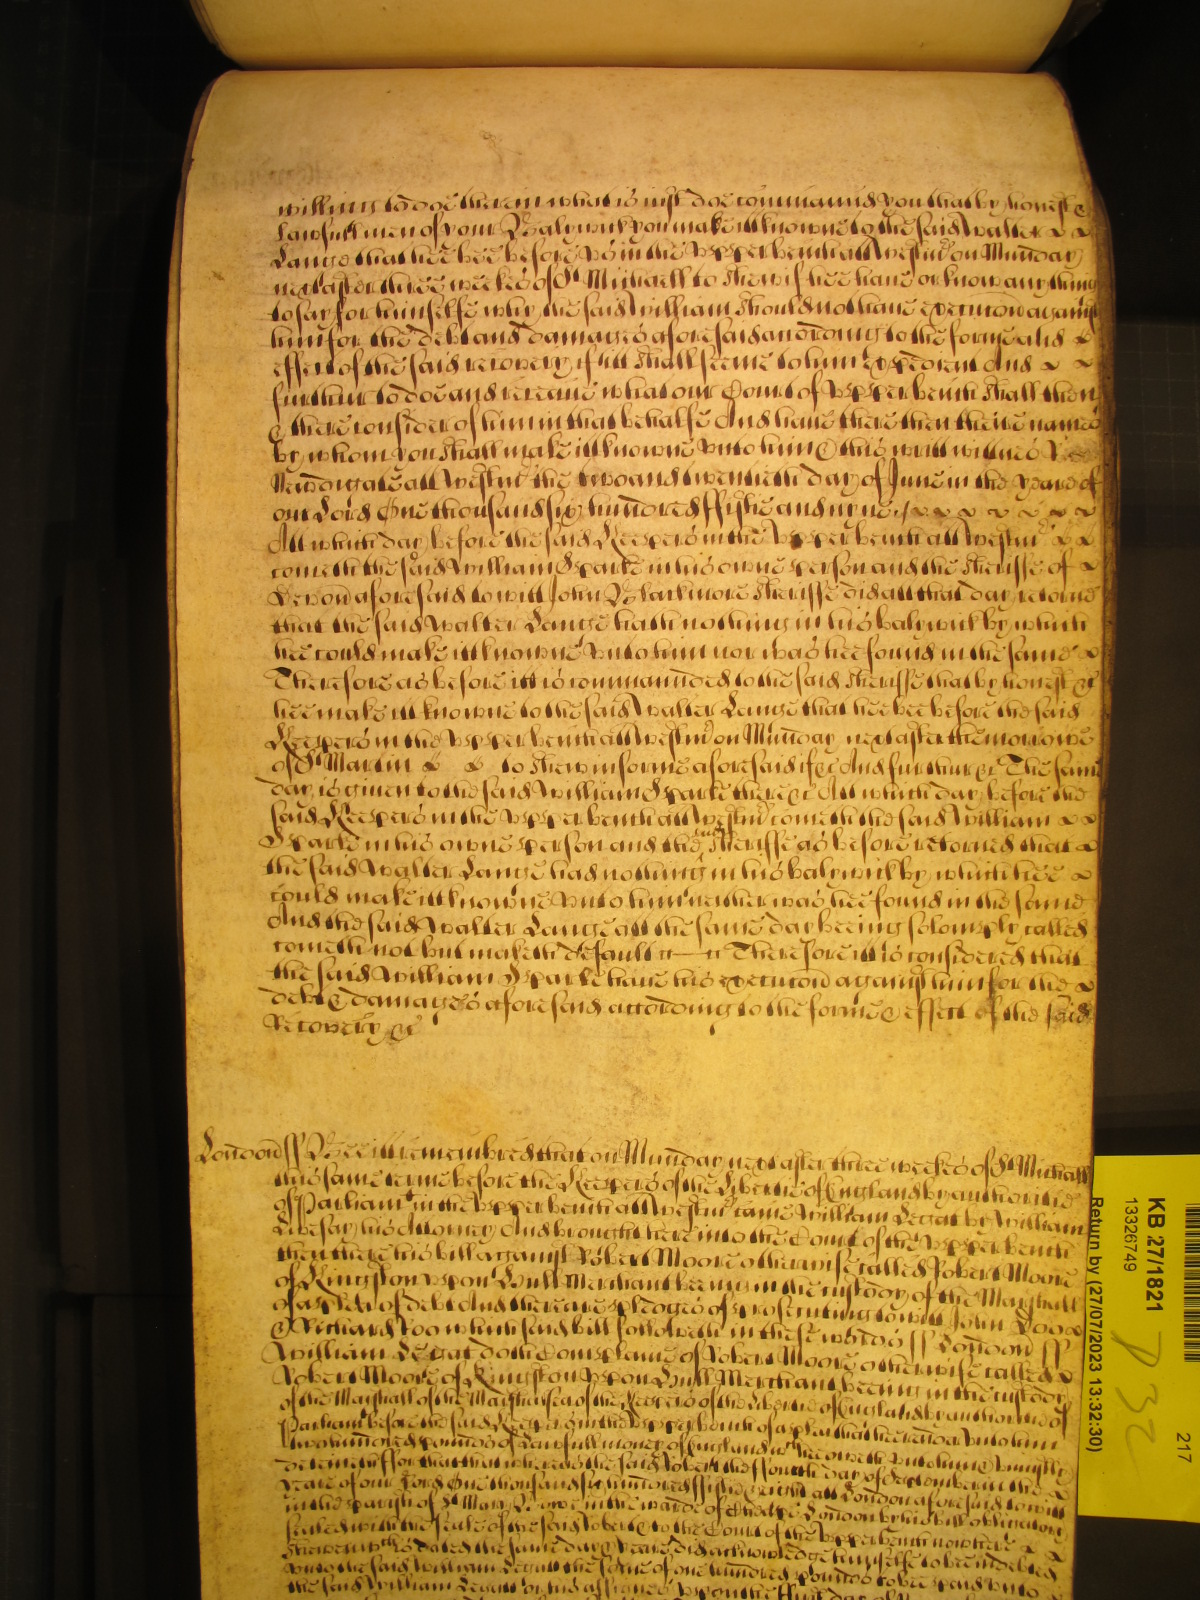 willing to doe therein what is iust doe command you that by honest &
lawfull men of your Balywick you make it knowne to the said Walter
Lange that hee bee before vs in the vpper bench att Westm̃ on Munday
next after three weekes of St Michaell to shew if hee haue or know any thing
to say for himselfe why the said William should not haue execution against
him for the debt and damages aforesaid according to the forme and
effect of the said recovery if itt shall seeme to him expedient And
further to doe and receaue what our Court of vpper bench shall then
& there consider of him in that behalfe And haue there then the names
by whom you shall make itt knowne vnto him & this writt witnes
Newdigate att Westm̃ the two and twentieth day of June in the yeare of
our Lord One thousand six hundred ffiftie and nyne
Att which day before the said Keepers in the Vpper bench att Westm̃
cometh the said William Sparke in his owne person and the Sheriffe of
Devon aforesaid to witt John Blackmore Sheriffe did att that day retorne
that the said Walter Lange hath nothing in his balywick by which
hee could make itt knowne vnto him nor was hee found in the same
Therefore as before itt is commannded to the said Sheriffe that by honest &c
hee make itt knowne to the said Walter Lange that hee bee before the said
Keepers in the Vpper bench att Westm̃ on Munday next after the morrowe
of St Martin to shew in forme aforesaid if &c And further &c The same
day is given to the said William Sparke there &c Att which day before the
said Keepers in the vpper bench att Westm̃ cometh the said William
Sparke in his owne person and the Sheriffe as before retorned that
the said Walter Lange had nothing in his balywick by which hee
could make itt knowne vnto him neither was hee found in the same
And the said Walter Lange att the same day beeing solemply called
cometh not but maketh default Therefore itt is considered that
the said William Sparke haue his execution against him for the
debt & damages aforesaid according to the forme & effect of the said
Recovery &c
London ss Bee itt remembred that on Munday next after three weekes of St Michaell
this same terme before the Keepers of the Libertie of England by authoritie
of Parliamt in the Vpper bench att Westm̃ came William Legat by William
Livesay his Attorney And brought here into the Court of the vpper bench
then there his bill against Robert Moore otherwise called Robert Moore
of Kingston vpon Hull Merchant beeing in the custody of the Marshall
of a plea of debt And there are pledges of prosecuting to witt John Doo
& Richard Roo which said bill followeth in these words ss London ss
William Legat doth Complaine of Robert Moore otherwise called
Robert Moore of Kingston vpon Hull Merchant beeing in the custody
of the Marshall of the Marshalsea of the Keepers of the Libertie of England by authoritie of
Parliamt before the said Keepers in the Vpper bench of a plea that hee render vnto him
two hundred pounds of lawfull money of England wch hee oweth vnto him & vniustly
deteineth ffor that that whereas the said Robert the ffourth day of September in the
yeare of our Lord One thousand six hundred ffiftie att London aforesaid to witt
in the parish of St Mary Bowe in the warde of Cheape London by his bill obligatory
sealed with the seale of the said Robert & to the Court of the vpper bench now here
shewen whose date is the same day & yeare did acknowledge himselfe to bee indebted
vnto the said William Legatt the some of one hundred pounds to bee paid vnto
the said William Legatt or his assignes vpon the
KB 27/1821
13326749
217
Return by (27/07/2023 13:32:30)
P 32